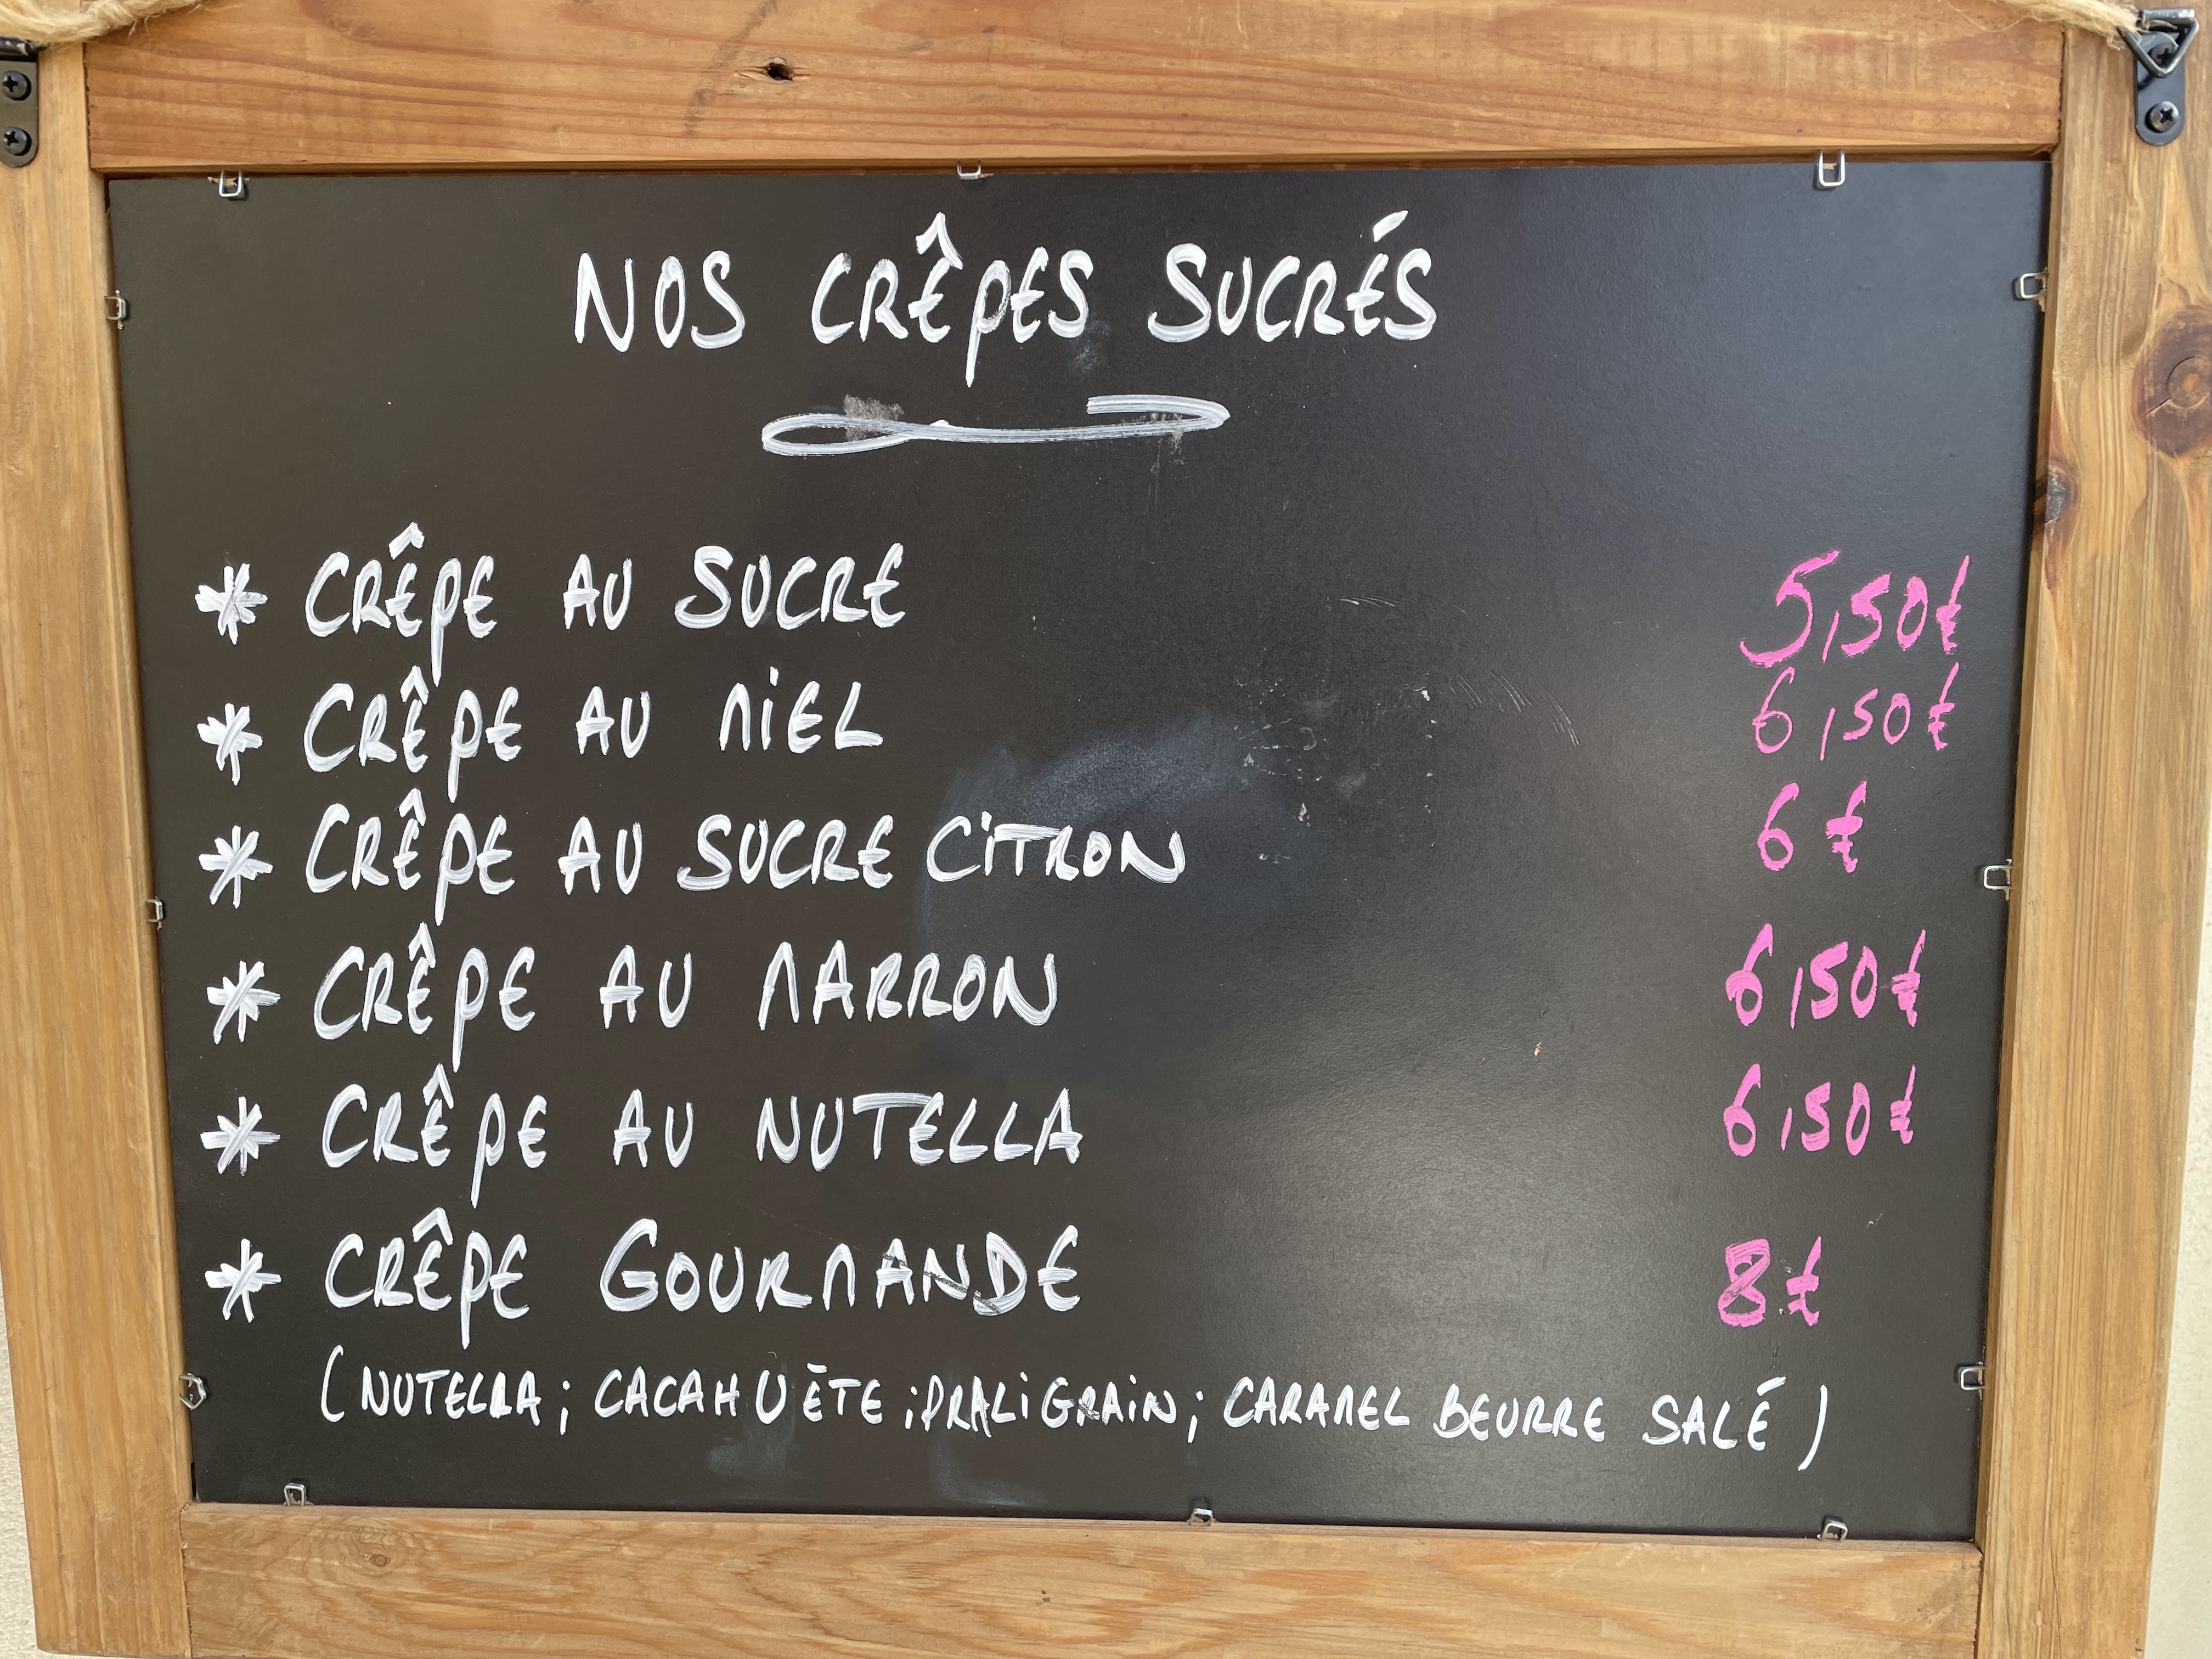 NOS CRÊPES SUCRÉS
* CRÊPE AU SUCRE 5,50€
* CRÊPE AU MIEL 6,50€
* CRÊPE AU SUCRE CITRON 6€
* CRÊPE AU MARRON 6,50€
* CRÊPE AU NUTELLA 6,50€
* CRÊPE GOURMANDE 8€
(NUTELLA; CACAHUÈTE; PRALIGRAIN; CARAMEL BEURRE SALÉ)